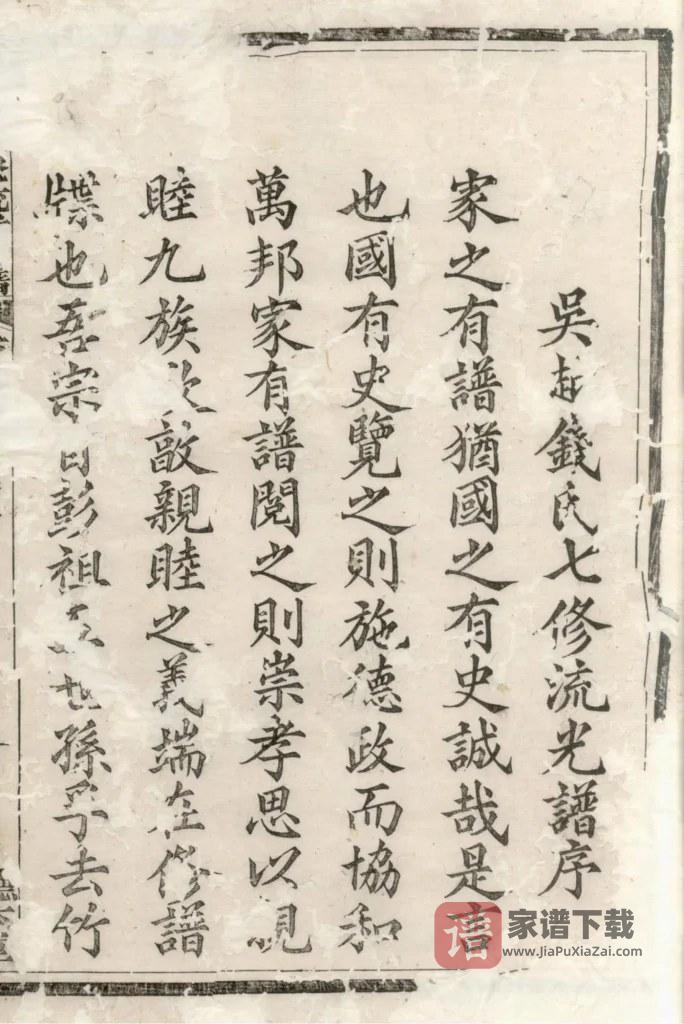 吳越錢氏七修流光譜序
家之有譜猶國之有史誠哉是言
也國有史覽之則施德政而協和
萬邦家有譜閱之則崇孝思以親
睦九族欲敦親睦之義端在修譜
牒也吾宗自彭祖世孫孚去竹
谱 家谱下载
www.JiaPuXiaZai.com